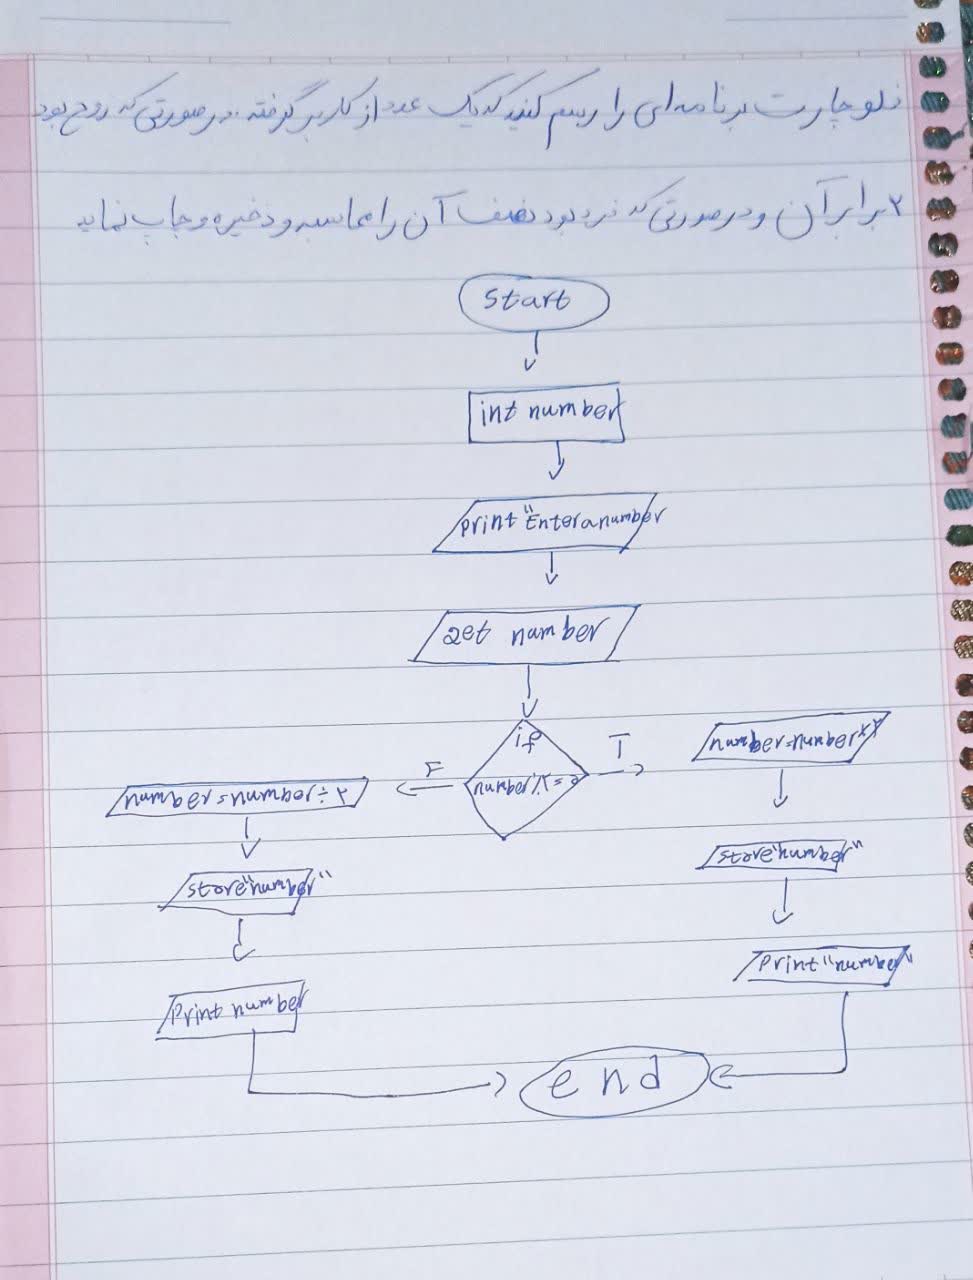 فلوچارت برنامه‌ای را رسم کنید که یک عدد از کاربر گرفته. در صورتی که زوج بود
۲ برابر آن و در صورتی که فرد بود نصف آن را محاسبه و ذخیره و چاپ نماید
start
int number
print "Enter a number
get number
if
number%۲=0
T
F
number=number×۲
number=number÷۲
store "number"
store "number"
print "number"
print number
end